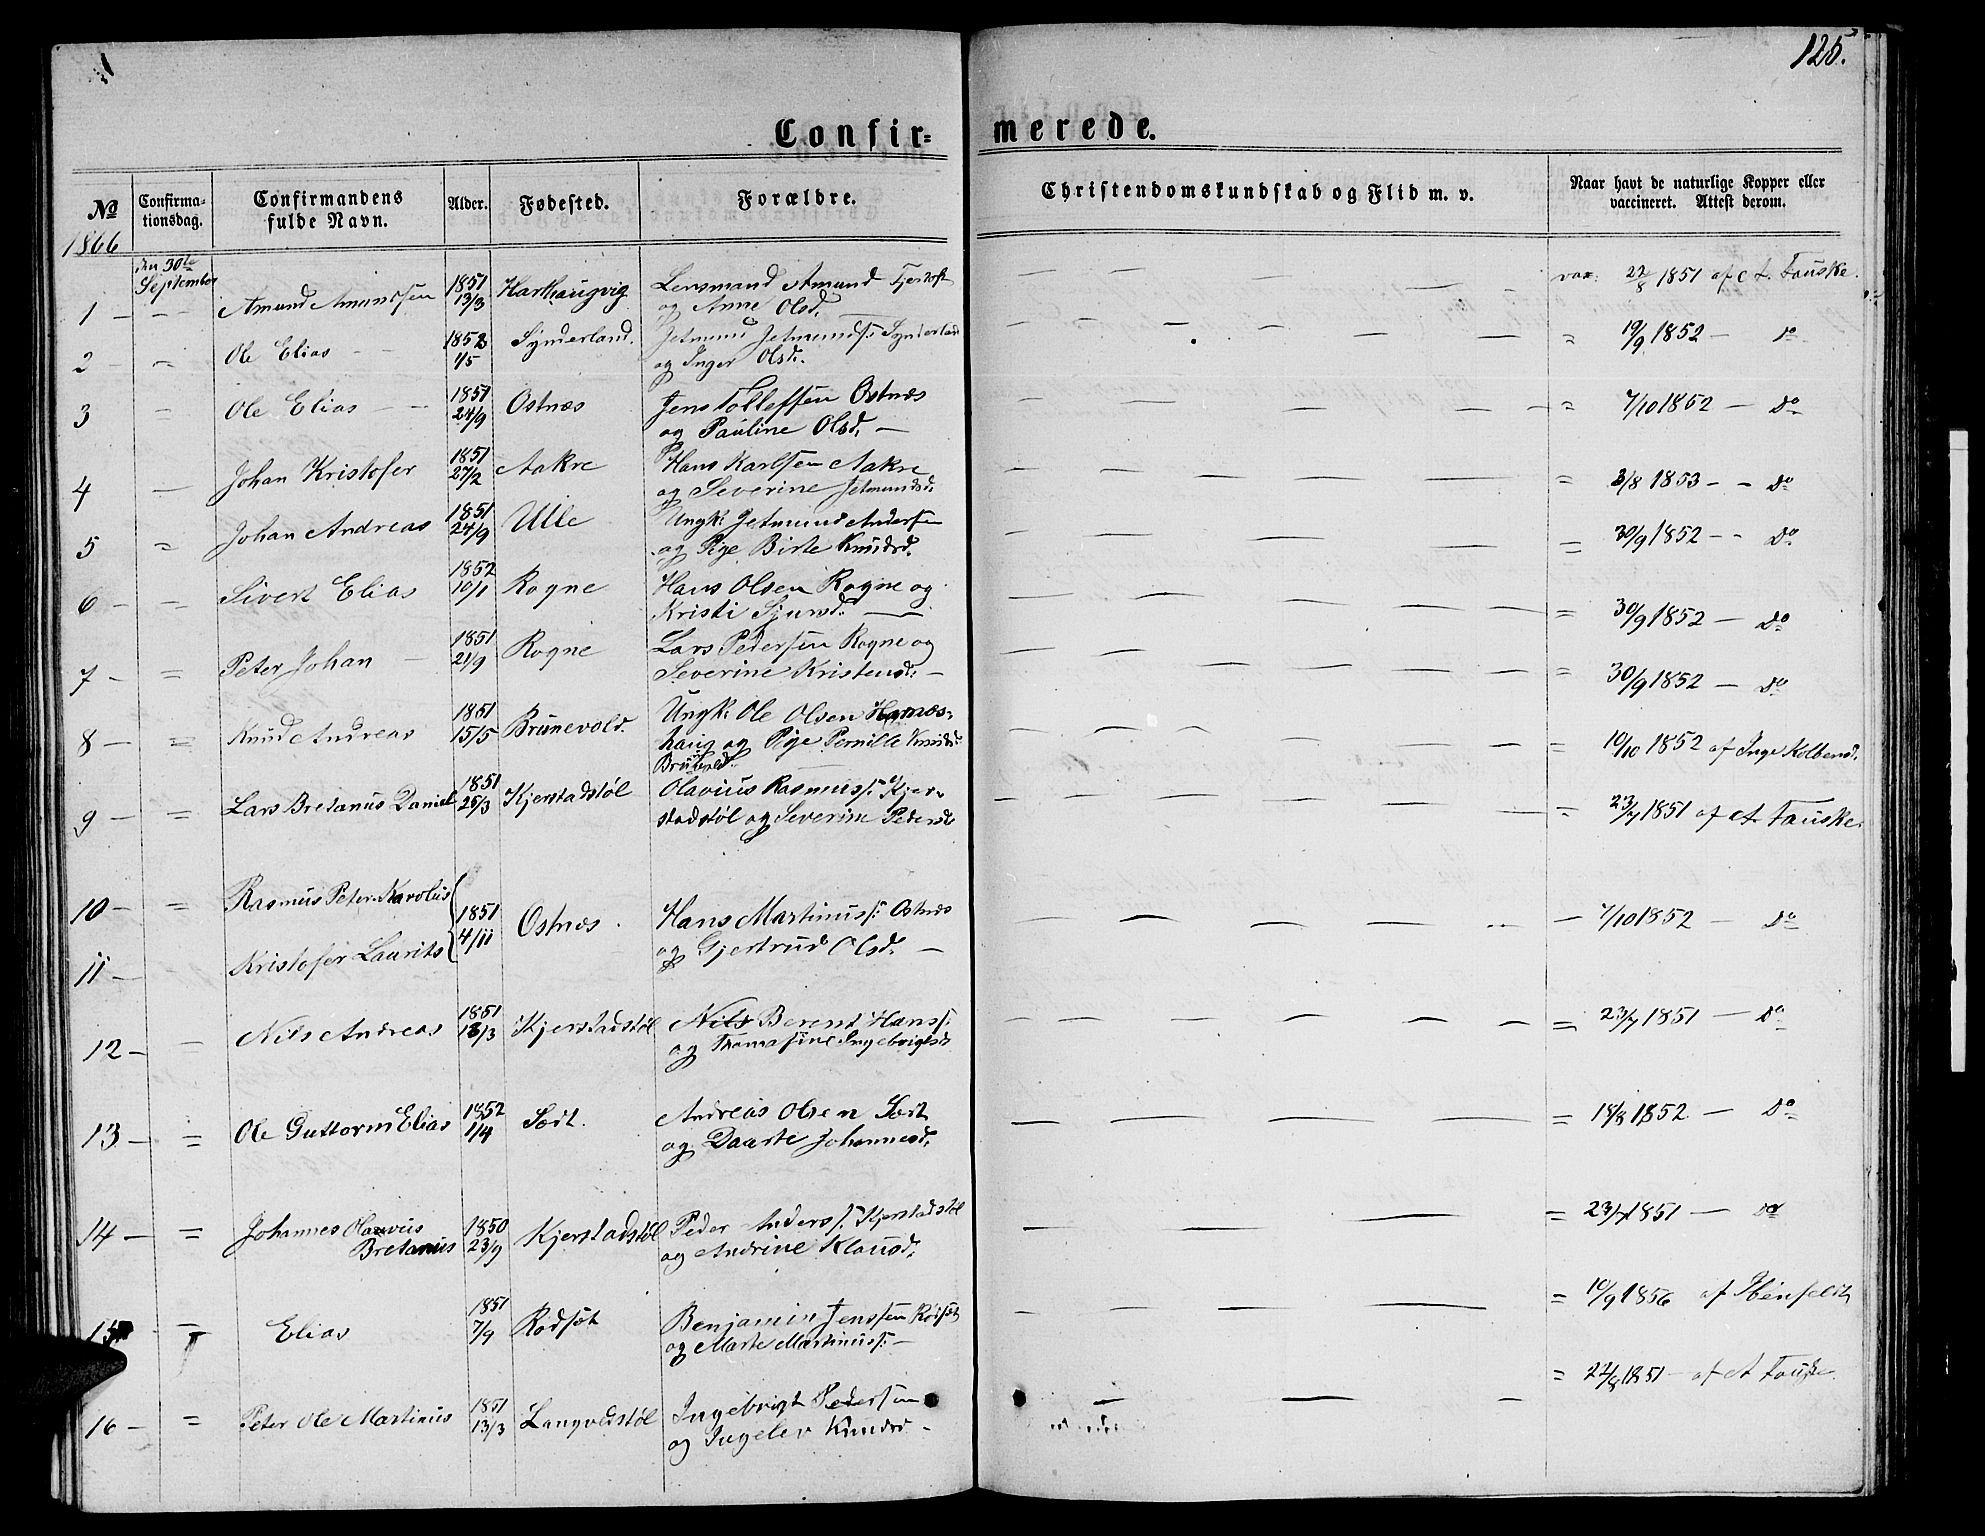 125.
Confir= merede.
No
Confirma-
tionsdag.
Confirmandens
fulde Navn.
Alder.
Fødested.
Forældre.
Christendomskundskab og Flid m. v.
Naar havt de naturlige Kopper eller
vaccineret. Attest derom.
1866
den 30te
September
1 — Amund Amundsen 1851 13/3 Harhaugvig Lensmand Amund
og Anne Olsd. vac. 22/8 1851 af A. Fauske.
2 — Ole Elias 1852 1/5 Synderland. Jetmund Jetmunds: Synderland
og Inger Olsd. = 19/9 1852 — Do
3 Ole Elias 1851 24/9 Ostnæs Jens Tolleffsen Ostnæs
og Pauline Olsd. = 7/10 1852 — Do
4 Johan Kristofer 1851 27/2 Aakre Hans Karlsen Aakre
og Severine Jetmundsd. = 3/8 1853 — Do
5 Johan Andreas 1851 24/9 Ulle Ungk: Jetmund Andersen
og Pige Birte Knudsd. = 30/9 1852 — Do
6 — Sivert Elias 1852 10/1 Rogne Hans Olsen Rogne og
Kristi Sjursd. = 30/9 1852 — Do
7 — Peter Johan 1851 21/9 Rogne Lars Pedersen Rogne og
Severine Kristensd. = 30/9 1852 — Do
8 — Knud Andreas 1851 15/5 Brunevold. Ungk: Ole Olsen Harnæs-
haug og Pige Pernille Knudsd.
= 10/10 1852 af Inge Kolbensd.
9 — Lars Bretanus Daniel 1851 25/3 Kjerstadstøl Olavius Rasmuss: Kjer-
stadstøl og Severine Pedersd. = 23/7 1851 af A. Fauske.
10 — Rasmus Peter Karolus
1851 4/11 Ostnæs. Hans Martinuss: Ostnæs
og Gjertrud Olsd. — 7/10 1852 — Do
11 — Kristofer Laurits
12 — Nils Andreas 1851 18/3 Kjerstadstøl Nils Berent Hanss:
og Thomasine Ingebrigtsd. = 23/7 1851 — Do
13 — Ole Guttorm Elias 1852 1/4 Sædt. Andreas Olsen Sædt
og Daarte Johannesd. = 18/8 1852 — Do
14 — Johannes Olavius
Bretanus 1850 23/9 Kjerstadstøl Peder Anderss: Kjerstadstøl
og Andrine Klausd. = 23/7 1851 — Do
15 Elias 1851 7/9 Rødsæt Benjamin Jenssen Rødsæt
og Marte Martinuss: — = 10/9 1856 af
16 — Peter Ole Martinus 1851 13/3 Langvedstøl Ingebrigt Pedersen
og Ingelev Knudsd — = 22/8 1851 — af A. Fauske.